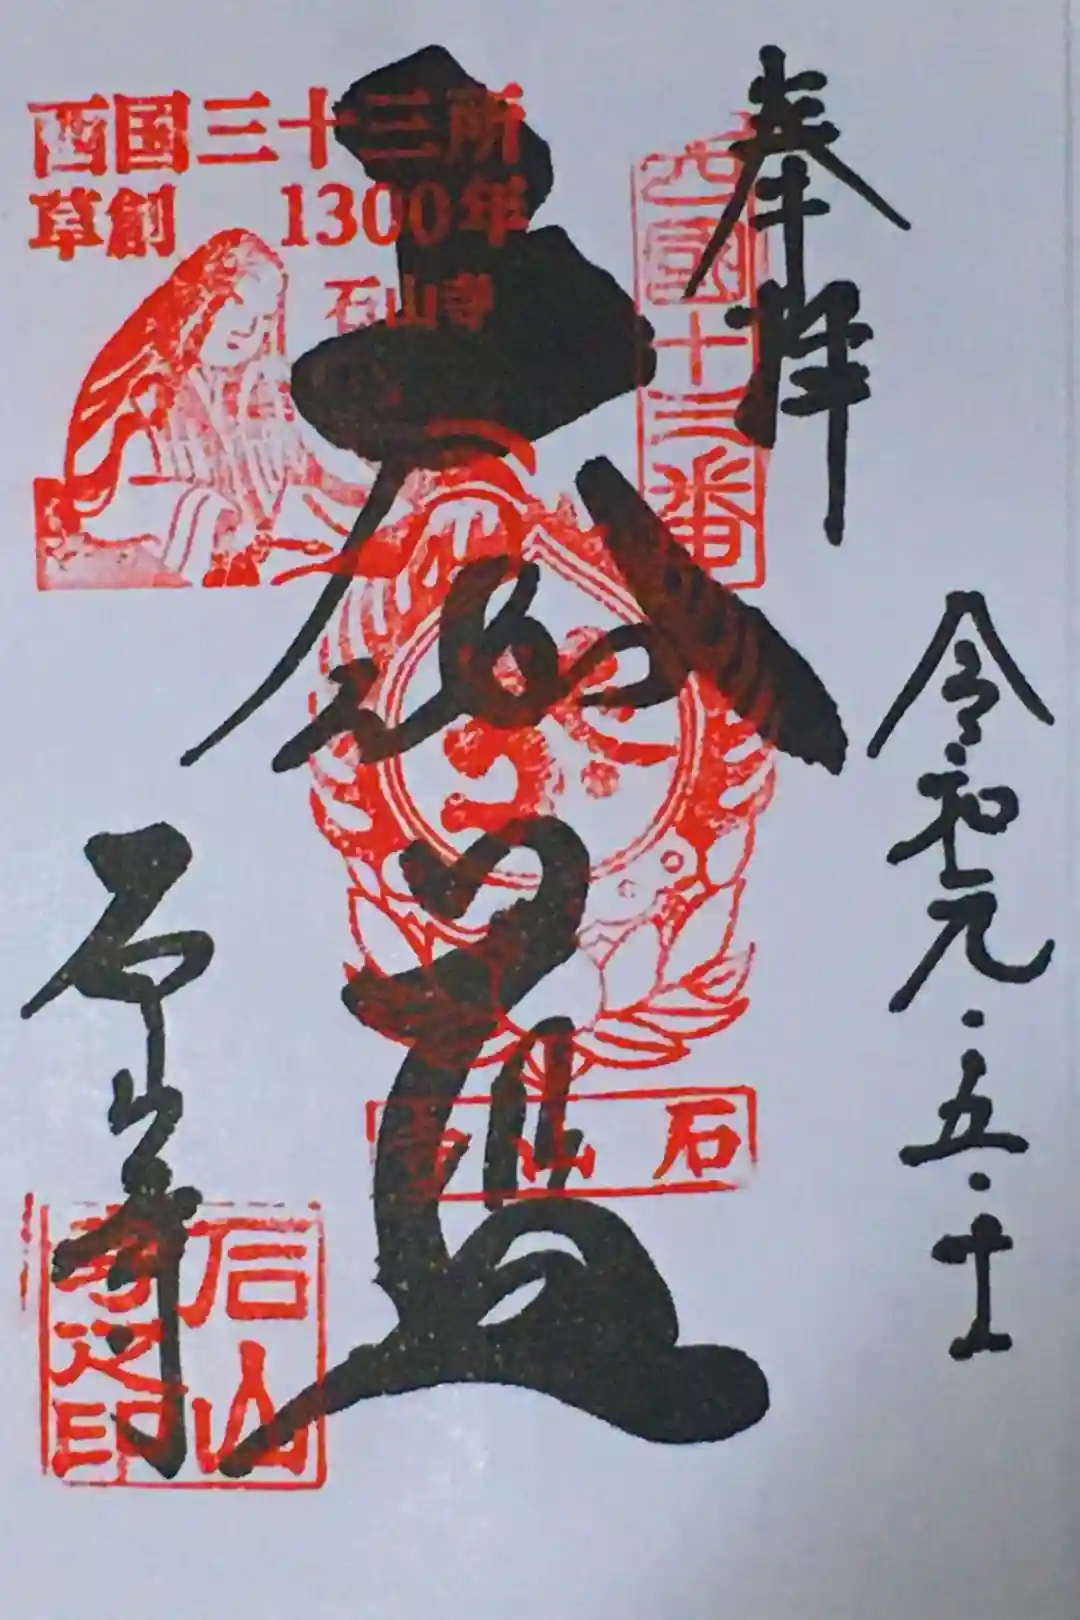 奉拝
西國十三番
令和元・五・十一
大悲殿
石山寺
西国三十三所
草創 1300年
石山寺
石山寺
石山寺之印